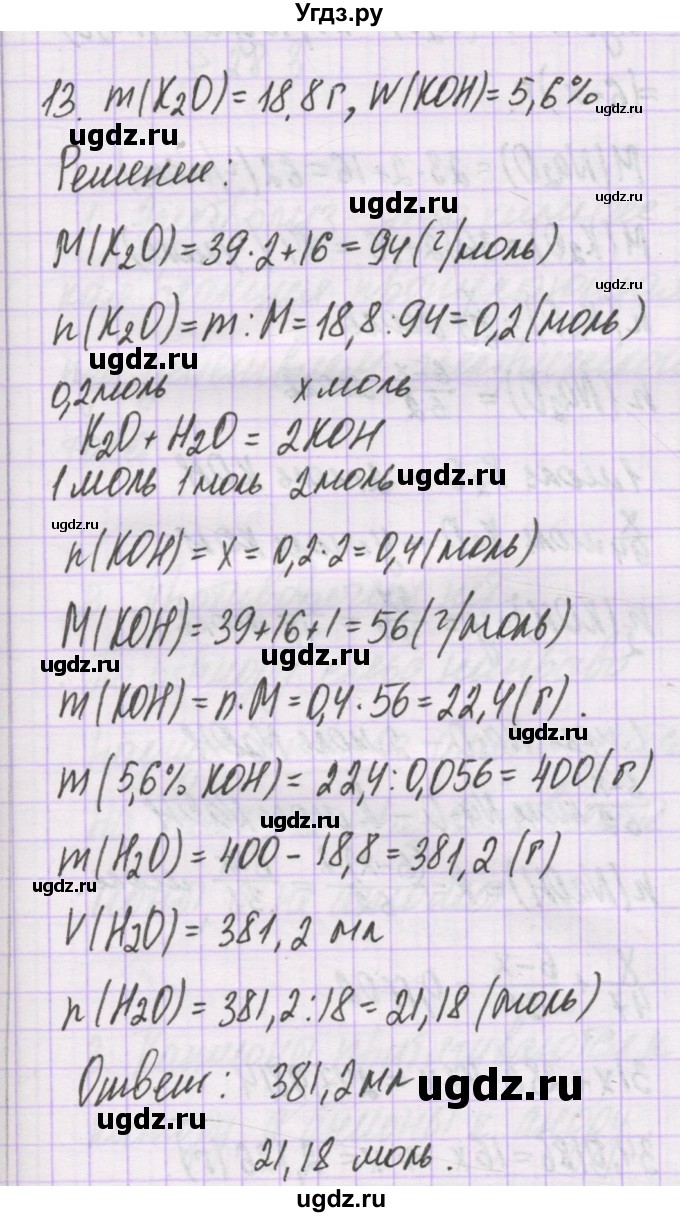 Угдз.ру
13. m(K₂O) = 18,8 г, W(KOH) = 5,6%
ugdz.ru
ugdz.ru
Решение:
ugdz.ru
ugdz.ru
M(K₂O) = 39·2+16 = 94 (г/моль)
ugdz.ru
n(K₂O) = m : M = 18,8 : 94 = 0,2 (моль)
ugdz.ru
0,2 моль x моль
ugdz.ru
K₂O + H₂O = 2KOH
1 моль 1 моль 2 моль
ugdz.ru
ugdz.ru
n(KOH) = x = 0,2·2 = 0,4 (моль)
M(KOH) = 39+16+1 = 56 (г/моль)
ugdz.ru
ugdz.ru
m(KOH) = n·M = 0,4·56 = 22,4 (г).
ugdz.ru
m(5,6% KOH) = 22,4 : 0,056 = 400 (г)
ugdz.ru
m(H₂O) = 400 - 18,8 = 381,2 (г)
ugdz.ru
V(H₂O) = 381,2 мл
ugdz.ru
n(H₂O) = 381,2 : 18 = 21,18 (моль)
Ответ: 381,2 мл
ugdz.ru
ugdz.ru
21,18 моль.
ugdz.ru
ugdz.ru